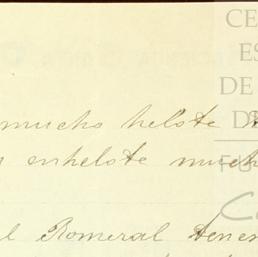 CE
ES
DE
D
mucho helote
enhelote much
FU
C
el Romeral tenem